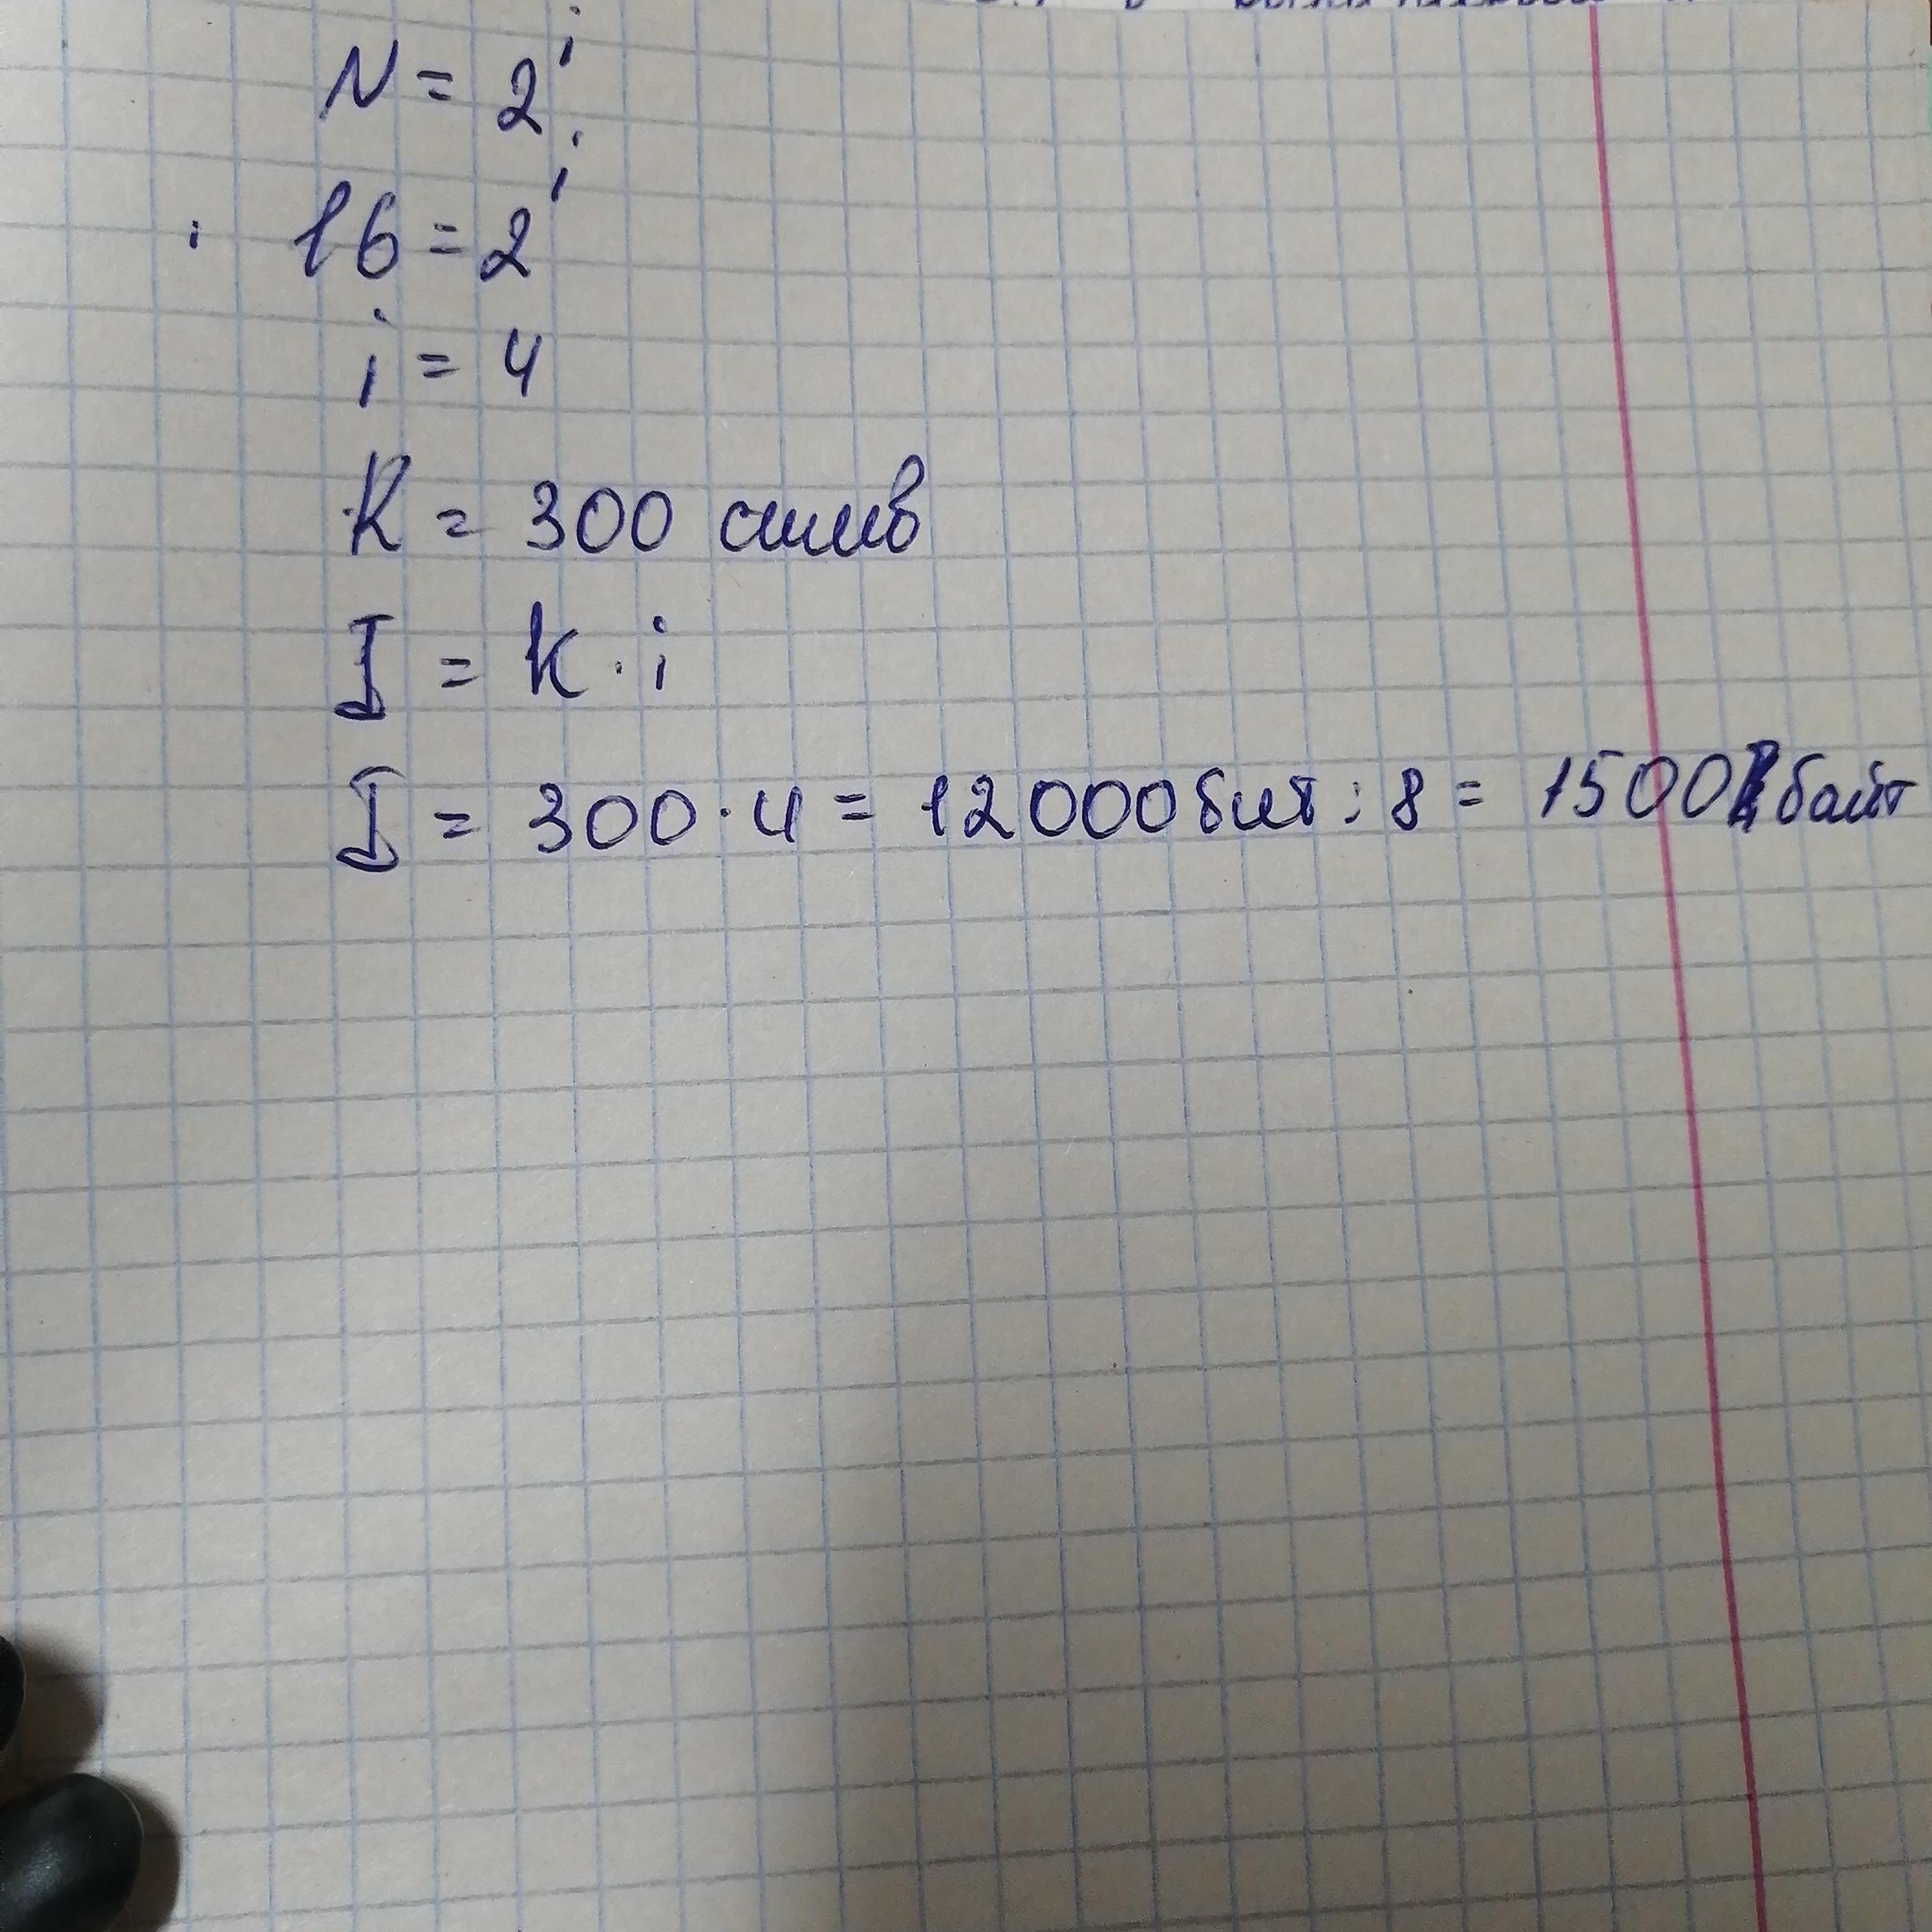 N = 2^i
16 = 2^i
i = 4
K = 300 симв
I = k · i
I = 300 · 4 = 12000 бит : 8 = 1500 байт